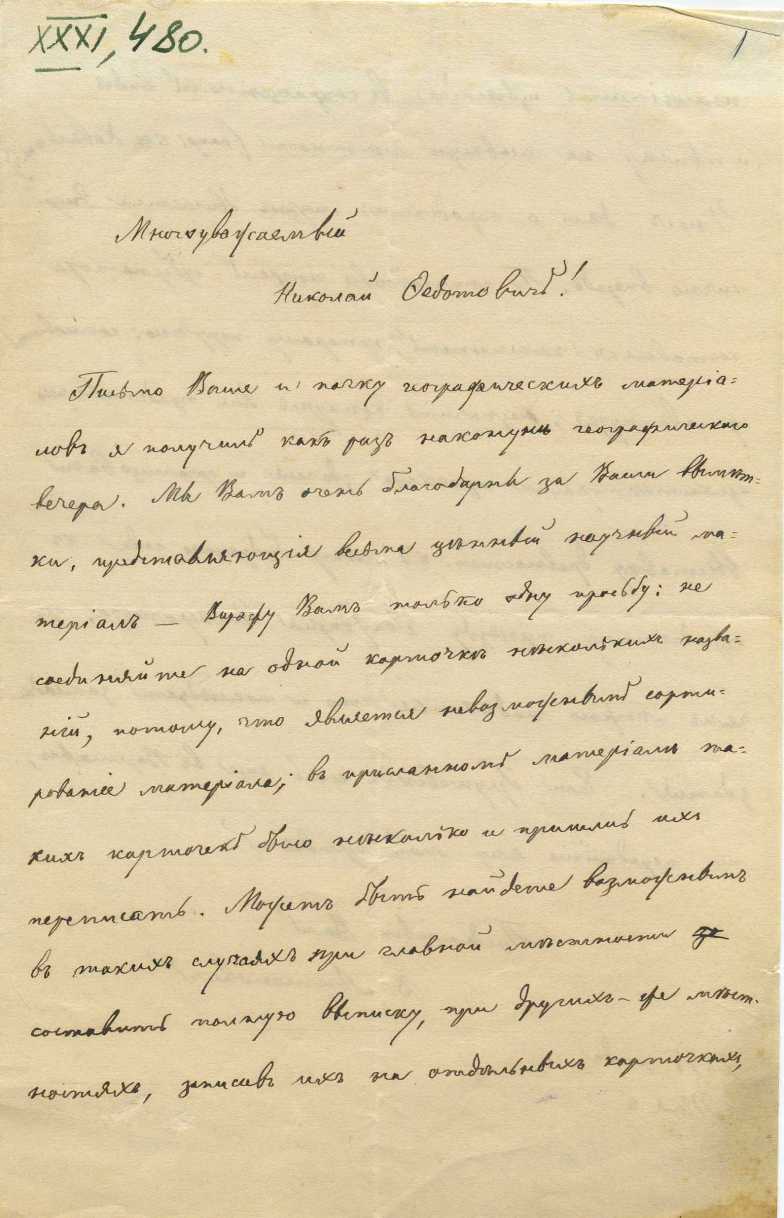 XXXI, 480.
1
Многоуважаемый
Николай Ѳедотовичъ!
Письмо Ваше и пачку географическихъ матеріа=
ловъ я получилъ какъ разъ наканунѣ географическаго
вечера. Мы Вамъ очень благодарны за Ваши вырѣз-
ки, представляющія весьма цѣнный научный ма-
теріалъ — Вырожу Вамъ только одну просьбу: не
соединяйте на одной карточкѣ нѣсколькихъ назва=
ній, потому, что является невозможнымъ сорти-
рованіе матеріала; въ присланномъ матеріалѣ та-
кихъ карточекъ было нѣсколько и пришлось ихъ
переписать. Можетъ быть найдете возможнымъ
въ такихъ случаяхъ при главной мѣстности
составить полную выписку, при другихъ-же мѣст-
ностяхъ, записавъ ихъ на отдѣльныхъ карточкахъ,